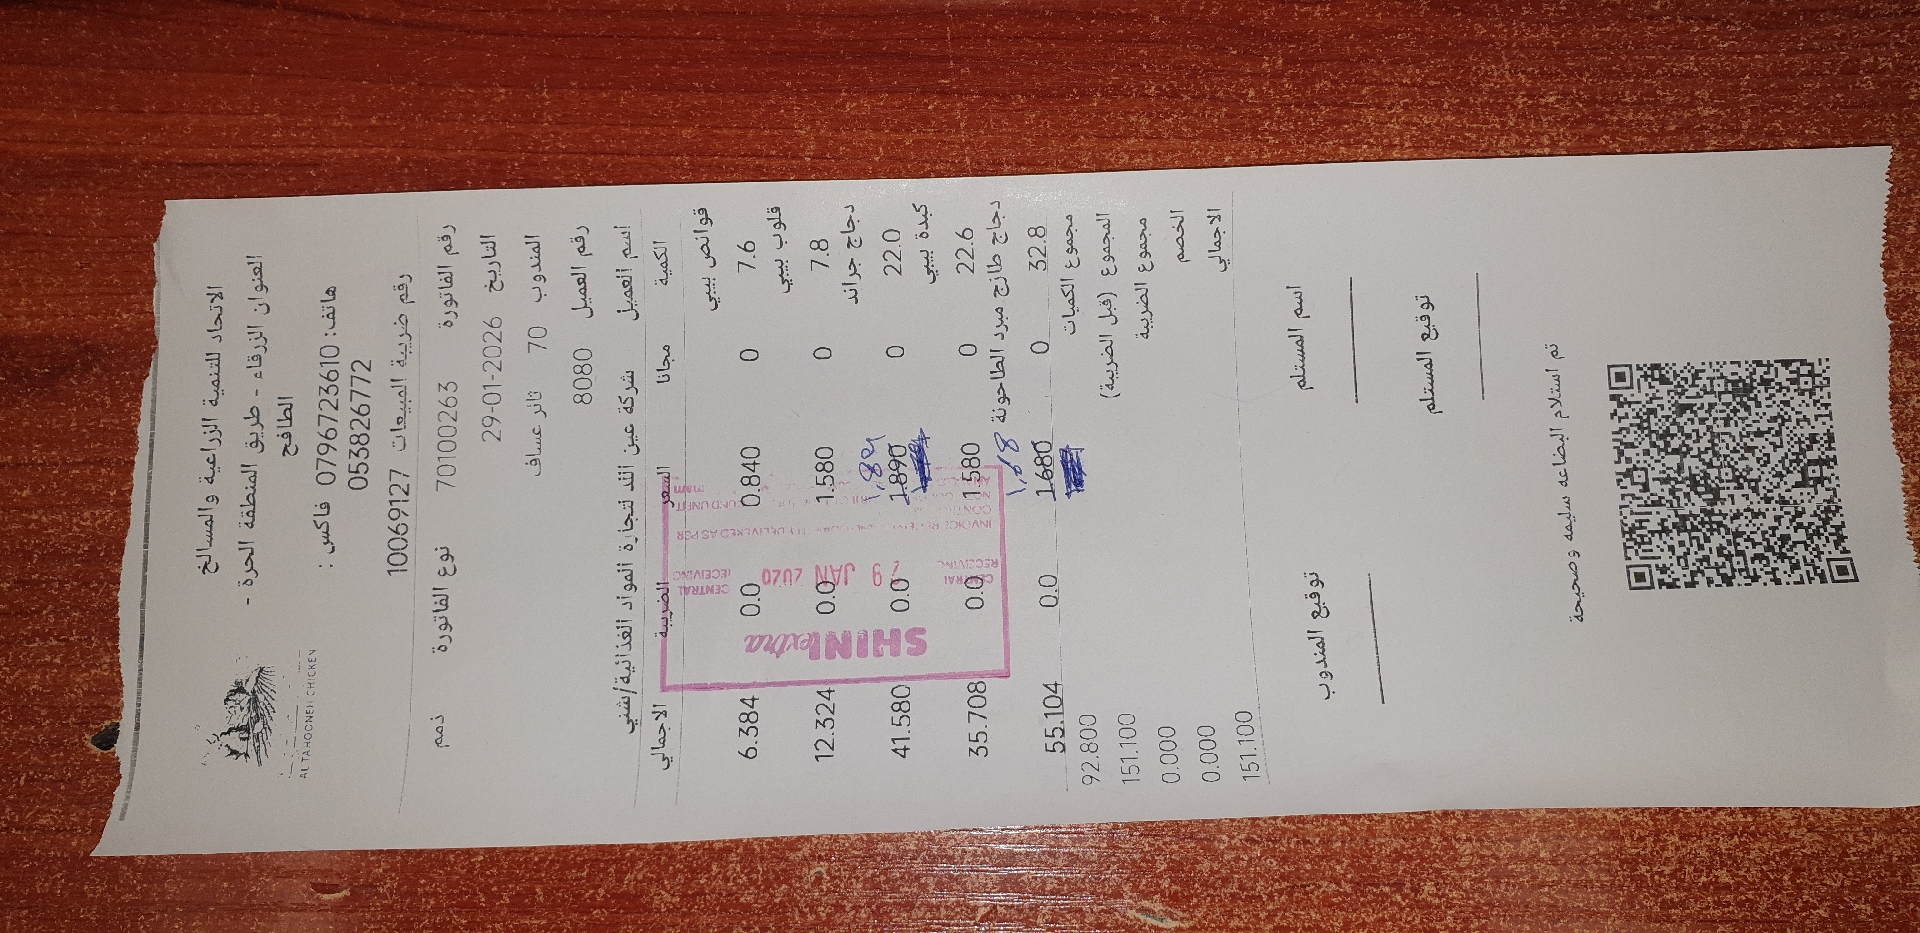 ALTAHOONEH CHICKEN
الاتحاد للتنمية الزراعية والمسالخ
العنوان الزرقاء - طريق المنطقة الحرة -
الطافح
هاتف: 0796723610 فاكس :
053826772
رقم ضريبة المبيعات 10069127
رقم الفاتورة 70100263 نوع الفاتورة ذمم
التاريخ 29-01-2026
المندوب 70 ثائر عساف
رقم العميل 8080
اسم العميل شركة عين الند لتجارة المواد الغذائية/شني
الكمية مجانا السعر الضريبة الاجمالي
قوانص بيبي
7.6 0 0.840 0.0 6.384
قلوب بيبي
7.8 0 1.580 0.0 12.324
دجاج جراند
1,89
22.0 0 1.890 0.0 41.580
كبدة بيبي
22.6 0 1.580 0.0 35.708
دجاج طازج مبرد الطاحونة
1,68
32.8 0 1.680 0.0 55.104
مجموع الكميات 92.800
المجموع (قبل الضريبة) 151.100
مجموع الضريبة 0.000
الخصم 0.000
الاجمالي 151.100
SHINI extra
CENTRAL RECEIVING
JAN 2020
CENTRAL
INVOICE DELIVERED AS PER
اسم المستلم
توقيع المندوب
توقيع المستلم
تم استلام البضاعه سليمه وصحيحة